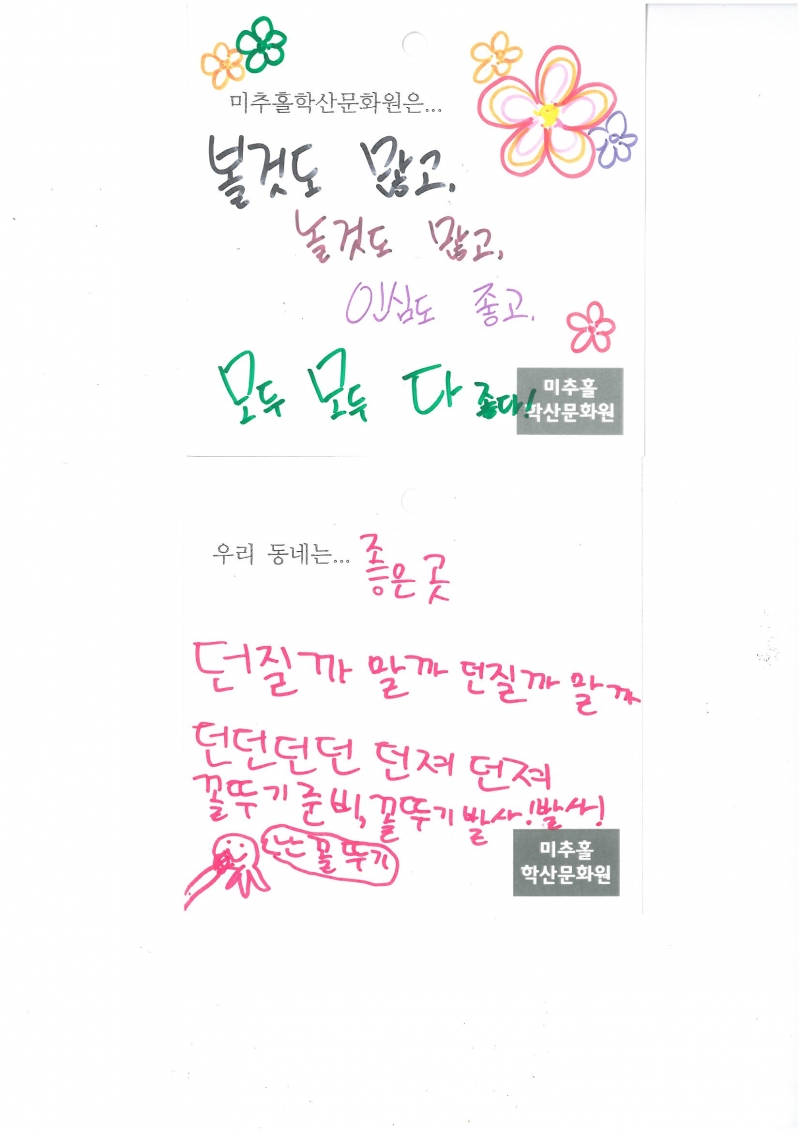 미추홀학산문화원은...
볼것도 많고,
놀것도 많고,
인심도 좋고,
모두 모두 다 좋다!
미추홀
학산문화원
우리 동네는... 좋은 곳
던질까 말까 던질까 말까
던던던던 던져 던져
꼴뚜기 준비, 꼴뚜기 발사! 발사!
난 꼴뚜기
미추홀
학산문화원